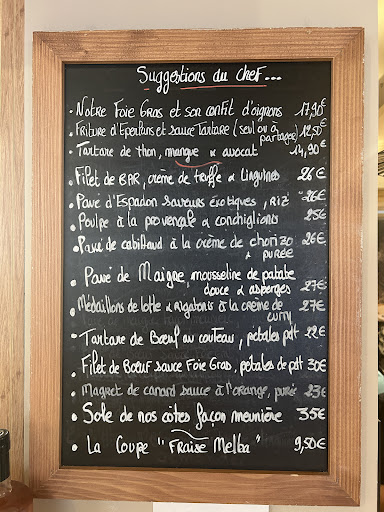 Suggestions du chef...
• Notre Foie Gras et son confit d'oignons 17,90€
• Friture d'Eperlans et sauce Tartare (seul ou à partager) 12,50€
• Tartare de thon, mangue & avocat 14,90€
• Filet de BAR, crème de truffe & linguines 26€
• Pavé d'Espadon saveurs exotiques, riz 26€
• Poulpe à la provençale & conchiglionis 25€
• Pavé de cabillaud à la crème de chorizo & purée 26€
Pavé de Maigre, mousseline de patate douce & asperges 27€
• Médaillons de lotte & rigatonis à la crème de curry 27€
• Tartare de Bœuf au couteau, petales pdt 22€
• Filet de Bœuf sauce Foie Gras, petales de pdt 30€
• Magret de canard sauce à l'orange, purée 23€
• Sole de nos côtes façon meunière 35€
• La Coupe "Fraise Melba" 9,50€